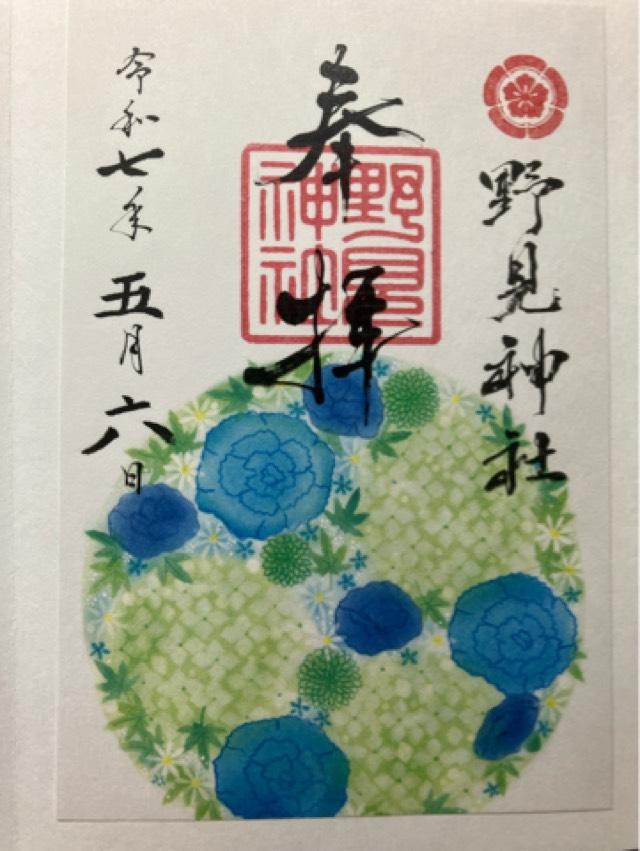 野見神社
奉拝
野見神社
令和七年五月六日